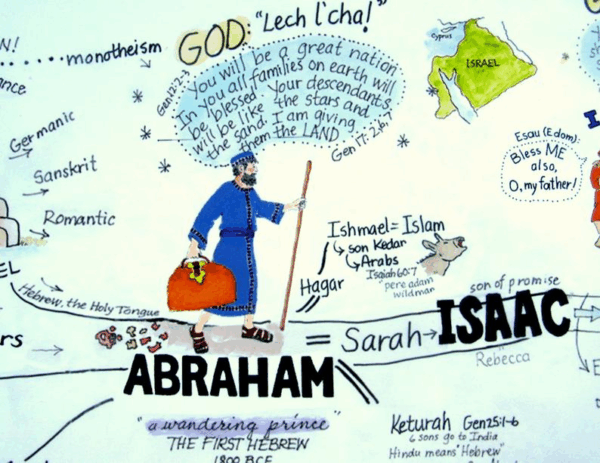 N!
monotheism
ance
GOD: "Lech l'cha!"
Gen 12:2-3
You will be a great nation
In you all families on earth will
be blessed. Your descendants
will be like the stars and
the sand. I am giving
them the LAND
Gen 17: 2,6,7
Cyprus
ISRAEL
Germanic
Sanskrit
Romantic
EL
Hebrew, the Holy Tongue
rs
Esau (Edom):
Bless ME
also,
O, my father!
I
Ishmael = Islam
son Kedar
Arabs
Isaiah 60:7
pere adam
wildman
Hagar
son of promise
= Sarah → ISAAC
Rebecca
E
ABRAHAM
"a wandering prince"
THE FIRST HEBREW
1800 BCE
Keturah Gen 25:1-6
6 sons go to India
Hindu means "Hebrew"